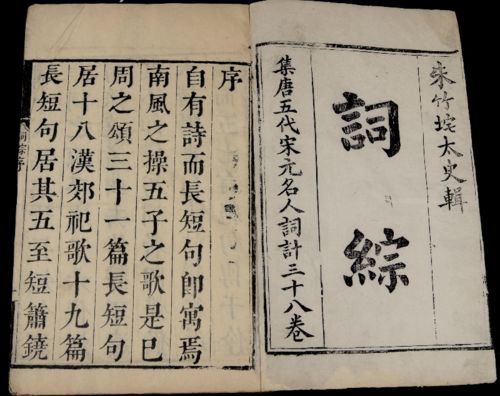 朱竹垞太史輯
詞綜
集唐五代宋元名人詞計三十八卷
序
自有詩而長短句卽寓焉
南風之操五子之歌是已
周之頌三十一篇長短句
居十八漢郊祀歌十九篇
長短句居其五至短簫鐃
詞綜序